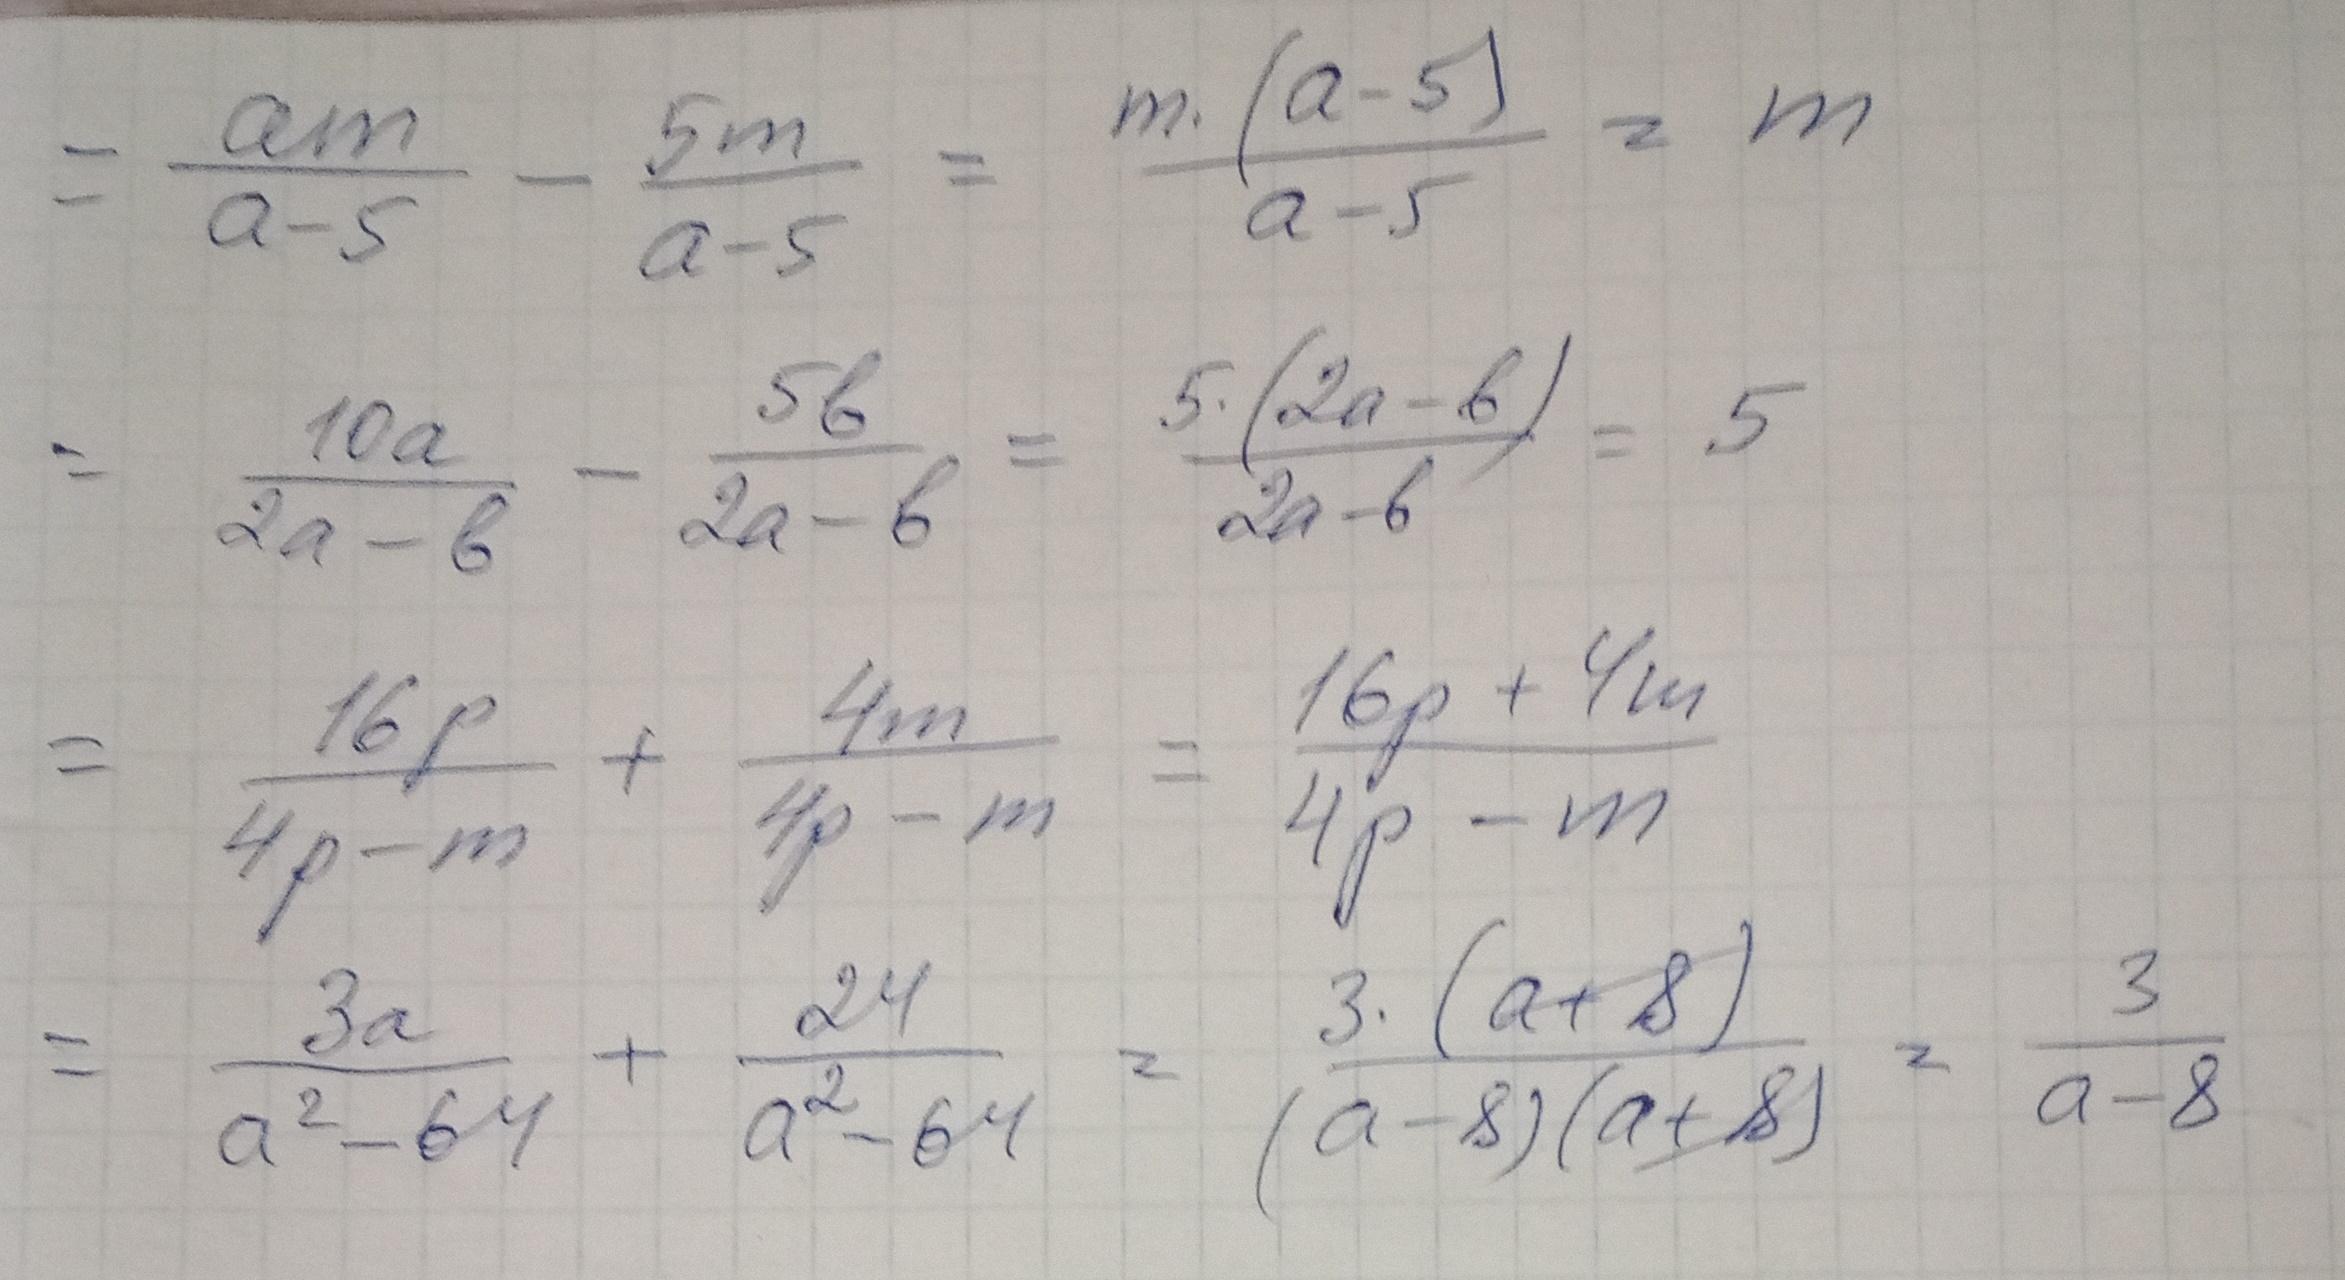 = am/(a-5) - 5m/(a-5) = m·(a-5)/(a-5) = m
= 10a/(2a-b) - 5b/(2a-b) = 5·(2a-b)/(2a-b) = 5
= 16p/(4p-m) + 4m/(4p-m) = (16p+4m)/(4p-m)
= 3a/(a²-64) + 24/(a²-64) = 3·(a+8)/((a-8)(a+8)) = 3/(a-8)